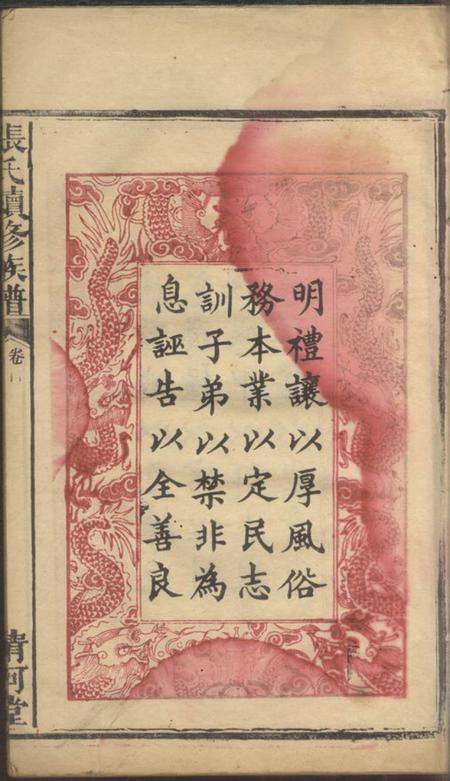 明禮讓以厚風俗
務本業以定民志
訓子弟以禁非為
息誣告以全善良
張氏續修族譜
卷
清河堂